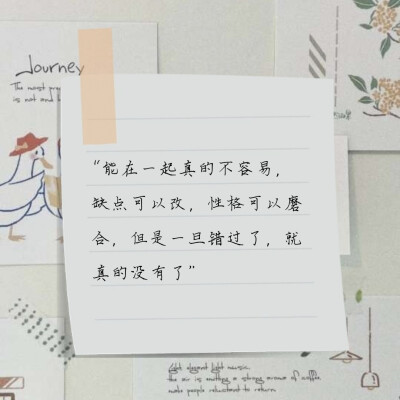 Journey
The most
is not and
“能在一起真的不容易，
缺点可以改，性格可以磨
合，但是一旦错过了，就
真的没有了”
light music
the air is emitting a strong aroma of coffee
make people reluctant to return